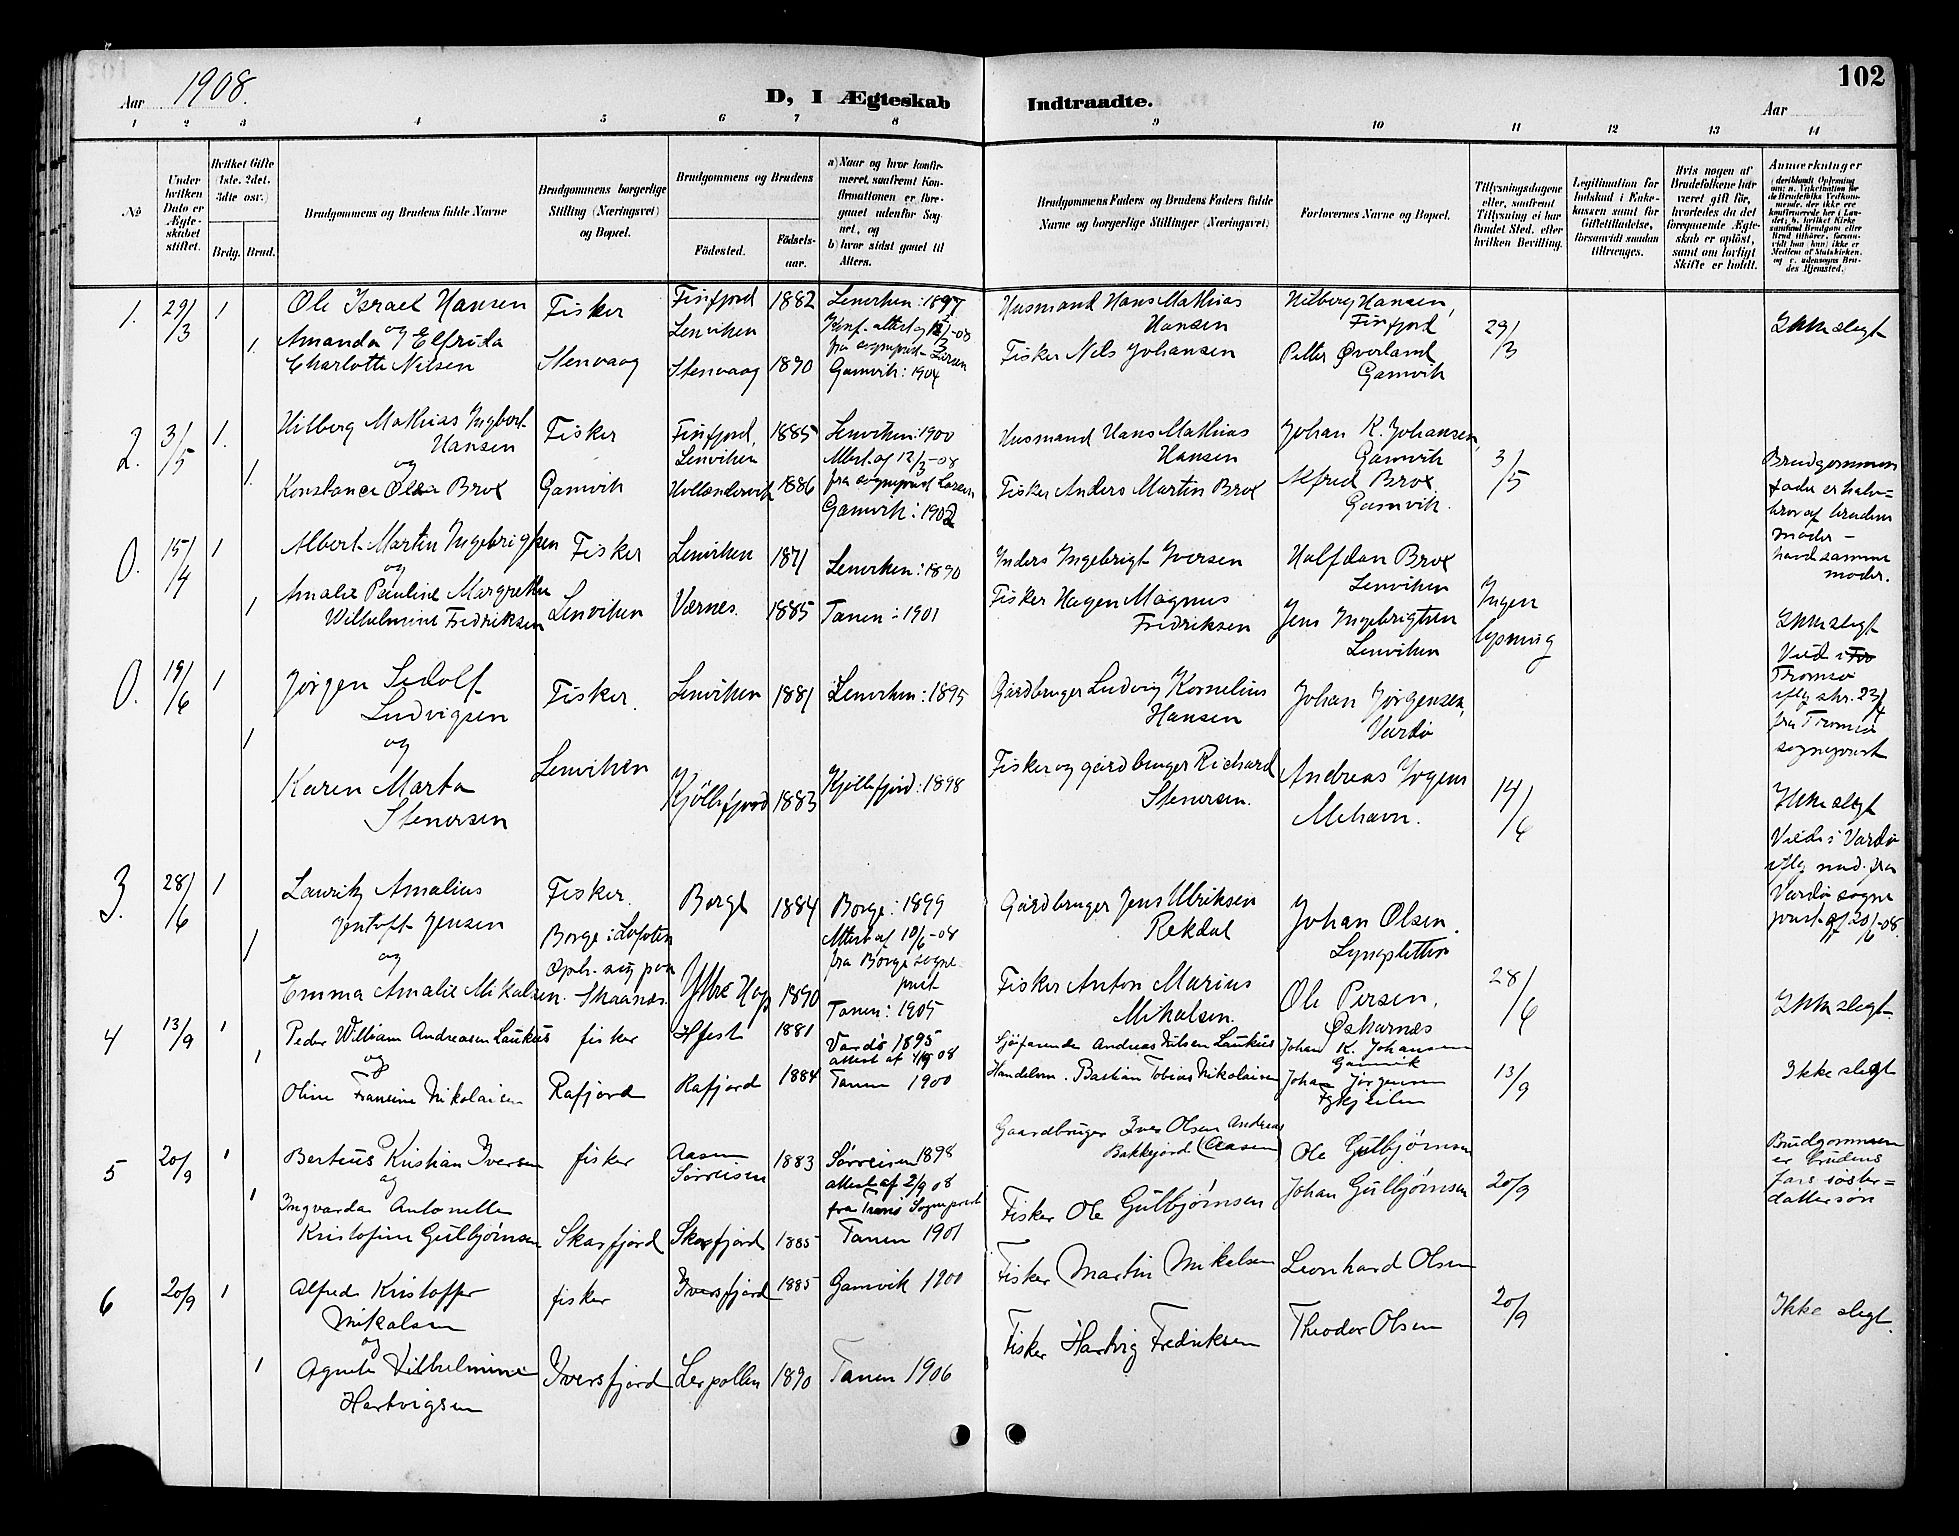 102
Aar 1908.
D, I Ægteskab Indtraadte.
Aar
1 2 3 4 5 6 7 8 9 10 11 12 13 14
№
Under hvilken Dato er Ægteskabet stiftet.
Hvilket Gifte (1ste, 2det, 3die osv.)
Brdg. Brud.
Brudgommens og Brudens fulde Navne
Brudgommens borgerlige Stilling (Næringsvei) og Bopæl.
Brudgommens og Brudens
Födested.
Födselsaar.
a) Naar og hvor konfirmeret, samfremt Konfirmationen er foregaaet udenfor Sognet, og
b) hvor sidst gaaet til Alters.
Brudgommens Faders og Brudens Faders fulde Navne og borgerlige Stillinger (Næringsvei)
Forlovernes Navne og Bopæl.
Tillysningsdagene eller, samfremt Tillysning ei har fundet Sted, efter hvilken Bevilling.
Legitimation for Indskud i Enkekassen samt for Giftetilladelse, forsaavidt saadan tiltrænges.
Hvis nogen af Brudefolkene har været gift før, hvorledes da det foregaaende Ægteskab er opløst, samt om lovligt Skifte er holdt.
Anmærkninger
1. 29/3 1 Ole Israel Hansen Fisker Finfjord 1882 Lenviken: 1897
og Lenviken Konf.-attest af 12/3-08
1. Amanda Elfrida fra sogneprest Larsen
Charlotte Nilsen Stenvaag Stenvaag 1890 Gamvik: 1904
Husmand Hans Mathias Hansen
Fisker Nils Johansen
Hilberg Hansen, Finfjord
Petter Øverland Gamvik
29/3
Ikke slegt
2. 3/5 1. Hilberg Mathias Ingbert Hansen Fisker Finfjord, Lenviken 1885 Lenviken: 1900
og Attest af 12/3-08
1. Konstance Olea Brox Gamvik Hollændervik 1886 fra sogneprest Larsen
Gamvik: 1902
Husmand Hans Mathias Hansen
Fisker Anders Martin Brox
Johan K. Johansen, Gamvik
Alfred Brox Gamvik.
3/5
Brudgommens
fader er halvbror af brudens
moder –
havd samme
moder.
0. 15/4 1 Albert Martin Ingebrigtsen Fisker Lenviken 1871 Lenviken: 1890
og
1 Amalie Pauline Margrethe
Wilhelmine Fredriksen Lenviken Værnes. 1885 Tanen: 1901
Inders Ingebrigt Iversen
Fisker Hagen Magnus Fredriksen
Halfdan Brox Lenviken
Jens Ingebrigtsen Lenviken
Ingen lysning
Ikke slegt
Vied i
Tromsø
iflg skr. 23/4
fra Tromsø
sogneprest
0. 19/6 1 Jørgen Sidolf Ludvigsen Fisker. Lenviken 1881 Lenviken: 1895
1 og
Karen Marta Stenersen Lenviken Kjøllefjord 1883 Kjøllefjord: 1898
Gårdbruger Ludvig Kornelius Hansen
Fisker og gårdbruger Richard Stenersen.
Johan Jørgensen, Vardø
Andreas Mehavn.
14/6
Ikke slegt
Vied i Vardø
iflg med. fra
Vardø sogneprest af 20/6-08.
3. 28/6 1 Lauritz Amalius Jentoft Jensen Fisker. Borge 1884 Borge: 1899
Borge i Lofoten Attest af 10/6-08
1 og Oph. sig paa fra Borge sogneprest
Emma Amalie Mikalsen. Skaanes. Ytre Hop 1890 Tanen: 1905
Gårdbruger Jens Ulriksen Rekdal
Fisker Anton Marius Mikalsen.
Johan Olsen,
Ole Persen,
Oskarnes
28/6
Ikke slegt
4 13/9 1 Peder William Andreasen Laukus fisker Hfest 1881 Vardø 1895
1 og attest af 4/9 08
Oline Fransine Nikolaisen Rafjord Rafjord 1884 Tanen 1900
Sjøfarende Andreas Nilsen Laukus
Handelsm. Bastian Tobias Nikolaisen
Johan K. Johansen Gamvik
Johan Jørgensen
13/9
Ikke slegt
5 20/9 1 Berteus Kristian Iversen fisker Aasen Sørreisen 1883 Sørreisen 1898
og attest af 2/9 08
1 Ingvarda Antonette fra Tranø Sogneprest
Kristofine Gulbjørnsen Skarfjord Skarfjord 1885 Tanen 1901
Gaardbruger Iver Olsen Andreas
Bakkejord (Aasen)
Fisker Ole Gulbjørnsen
Ole Gulbjørnsen
Johan Gulbjørnsen
20/9
Brudgommen
er brudens
fars søsterdattersøn
6 20/9 1 Alfred Kristoffer Mikalsen fisker Iversfjord 1885 Gamvik 1900
og
1 Agnete Vilhelmine Hartvigsen Iversfjord Lerpollen 1890 Tanen 1906
Fisker Martin Mikalsen
Fisker Hartvig Fredriksen
Leonhard Olsen
Theodor Olsen
20/9
Ikke slegt.